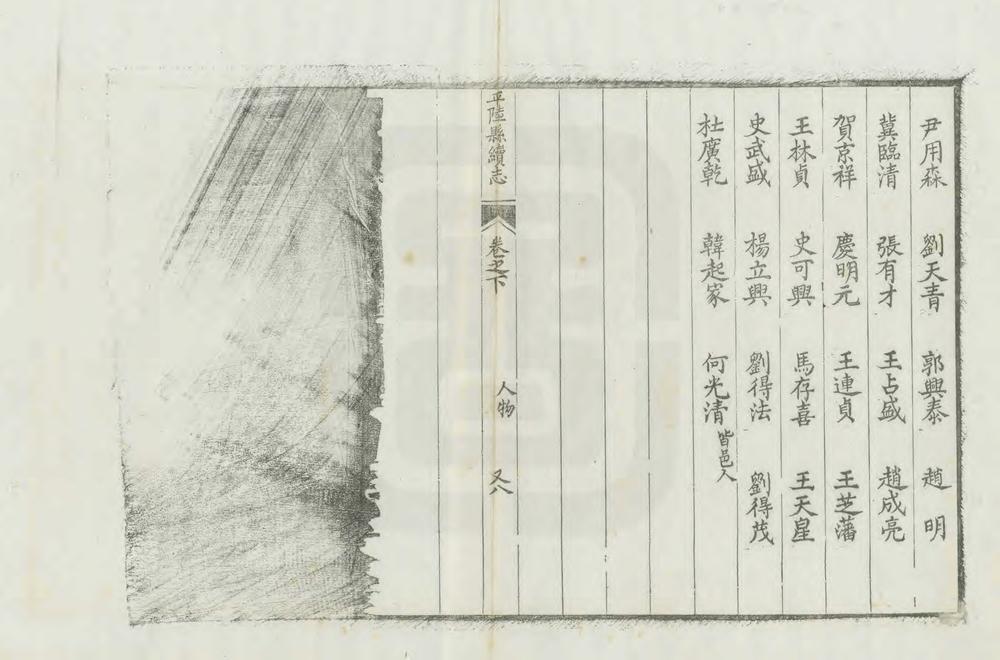 尹用森　劉天青　郭興泰　趙　明
冀臨清　張有才　王占盛　趙成亮
賀京祥　慶明元　王連貞　王芝藩
王林貞　史可興　馬存喜　王天星
史武盛　楊立興　劉得法　劉得茂
杜廣乾　韓起家　何光清　皆邑人
平陸縣續志　卷之下　人物　又八